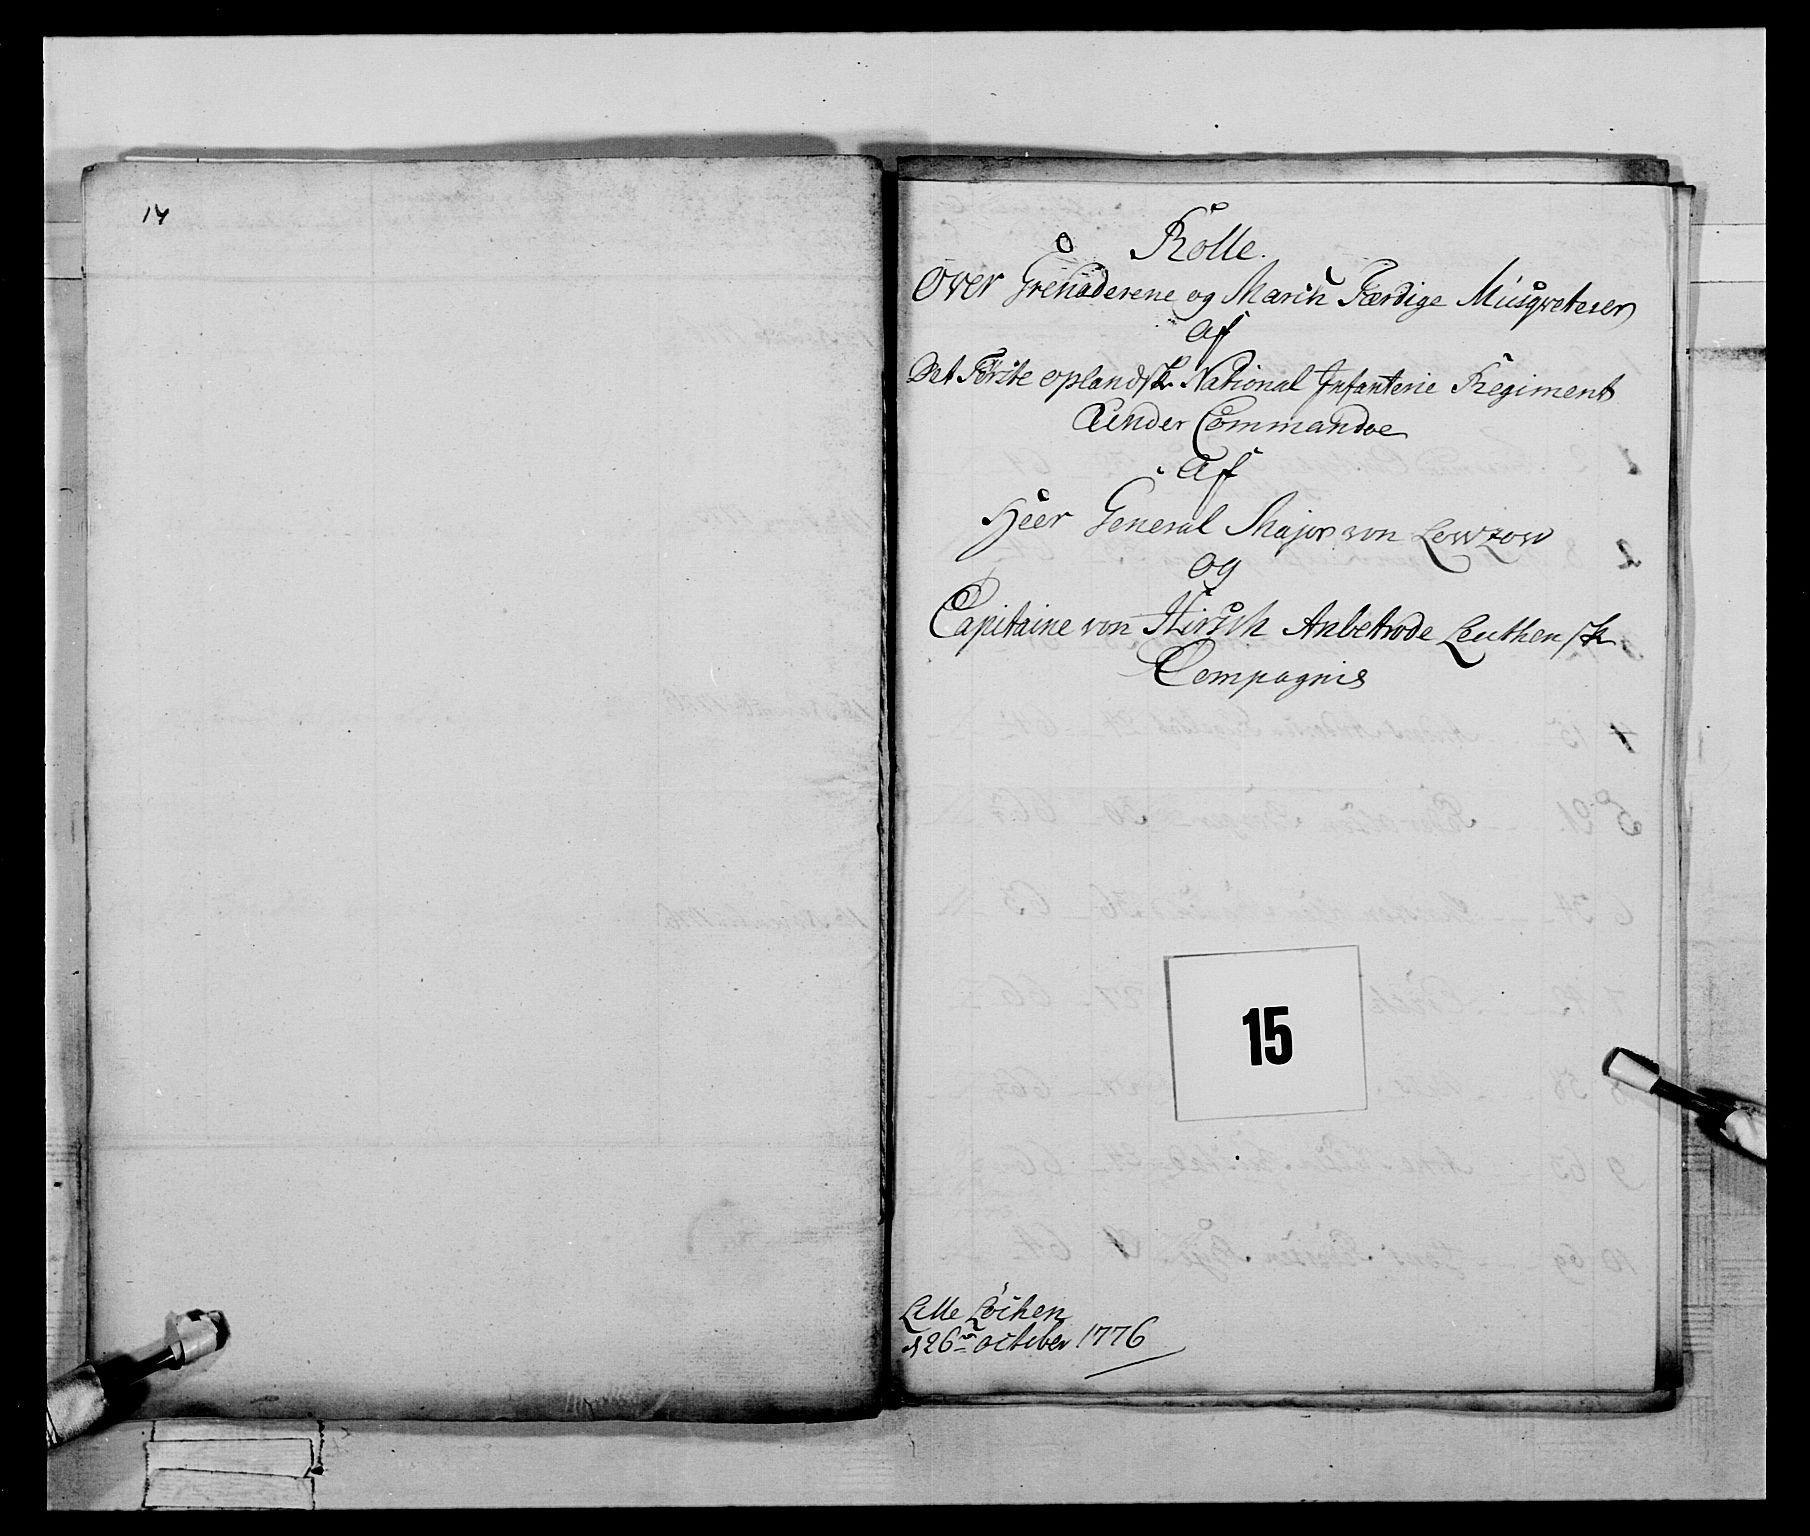 14
Rolle.
Over Grenaderene og March Færdige Musqveterer
af
Det Förste oplandske National Infanterie Regiment
Under Commandoe
af
Heer General Major von Lowzow
og
Capitaine von Hirsch Anbetrode Leuthenske
Compagnie
15
Lille Löchen
d 26de october 1776